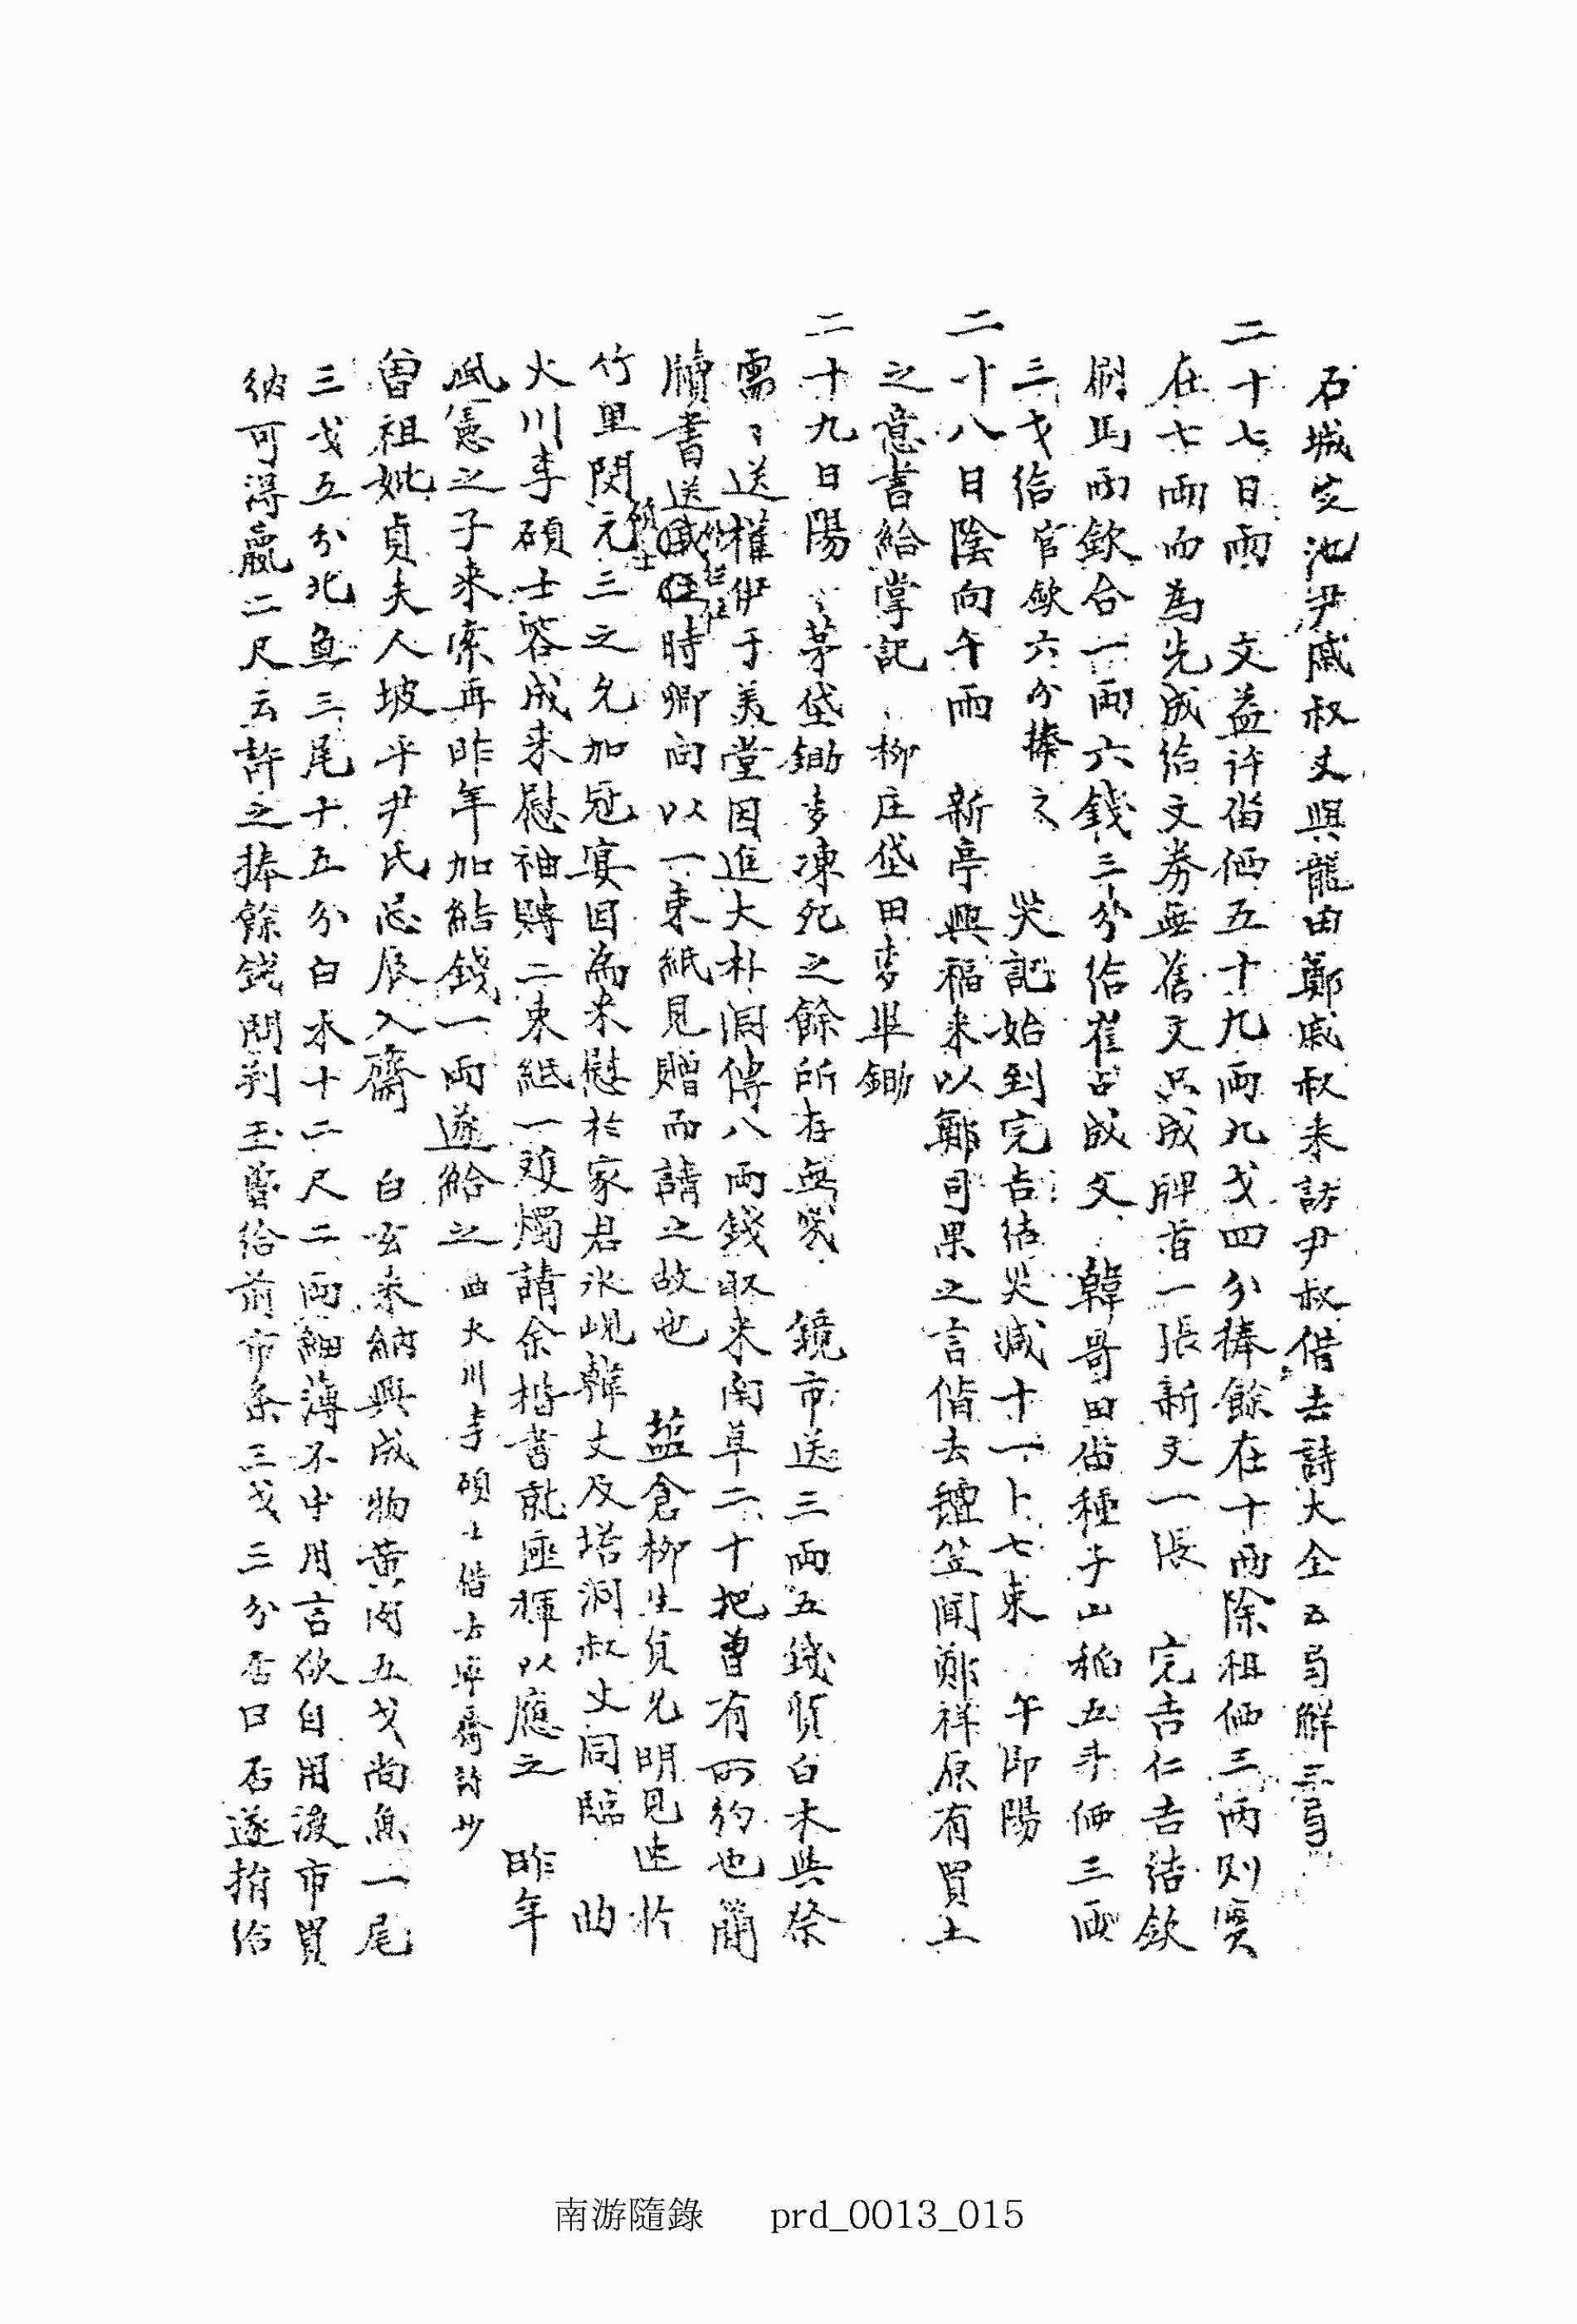 石城安池尹戚叔丈與龍田鄭戚叔來訪尹叔借去詩大全五弓鮮三弓
二十七日雨 文益許畓価五十九兩九戈四分捧餘在十兩除租価三兩則實
在七兩而為先成給文券無舊文只成牌旨一張新文一張 完吉仁吉結欽
刷馬兩欽合一兩六錢三分給崔占成文 韓哥田畓種子山稻五斗価三兩
三戈給官欽六分捧之 災記始到完吉結災減十一卜七束 午即陽
二十八日陰向午雨 新亭興福來以鄭司果之言借去氈笠聞鄭祥原有買土
之意書給掌記 柳庄垈田麥畢鋤
二十九日陽 茅垈鋤麥凍死之餘所存無幾 鏡市送三兩五錢貿白木與祭
需 送權伊于美堂因進大朴洞傳八兩錢取來南草二十把曾有所約也簡
牘書送戚侄時卿向以一束紙見贈而請之故也 藍倉柳生員兄明見迭於
竹里閔元三之允加冠宴因為來慰於家君氷峴韓丈及塔洞叔丈同臨 曲
火川李碩士容成來慰袖賻二束紙一雙燭請余楷書就座揮以應之 昨年
風憲之子來索再昨年加結錢一兩遂給之 曲火川李碩士借去
曾祖妣貞夫人坡平尹氏忌辰入齋 白玄來納興成物黃肉五戈尚魚一尾
三戈五分北魚三尾十五分白木十二尺二兩細薄不中用言欲自用後市買
納可得贏二尺云許之捧餘錢問判玉曾給前市条三戈三分否曰否遂捎給
南游隨錄 prd_0013_015